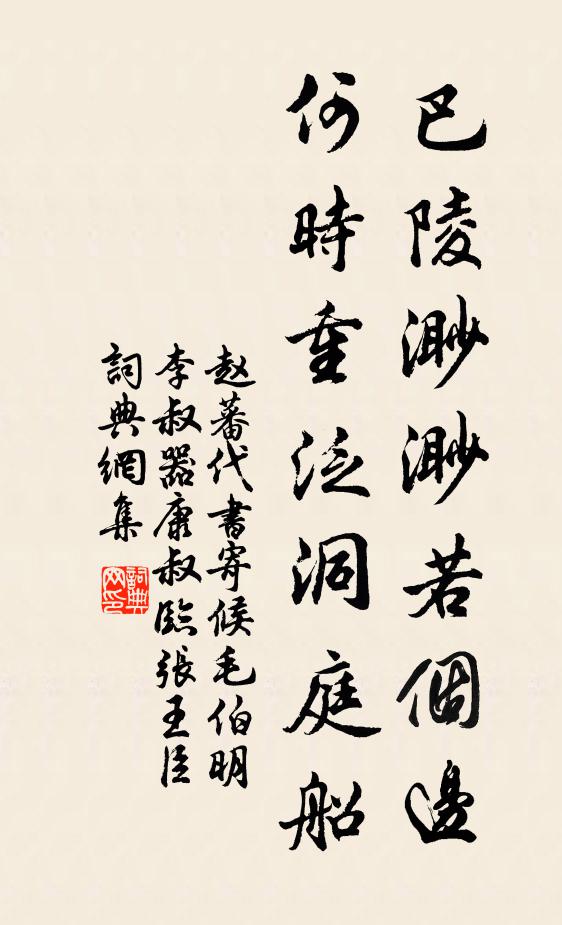 巴陵渺渺若個邊
何時重泛洞庭船
赵蕃代書寄候毛伯明
李叔器康叔臨張王臣
詞典網集
詞典網印